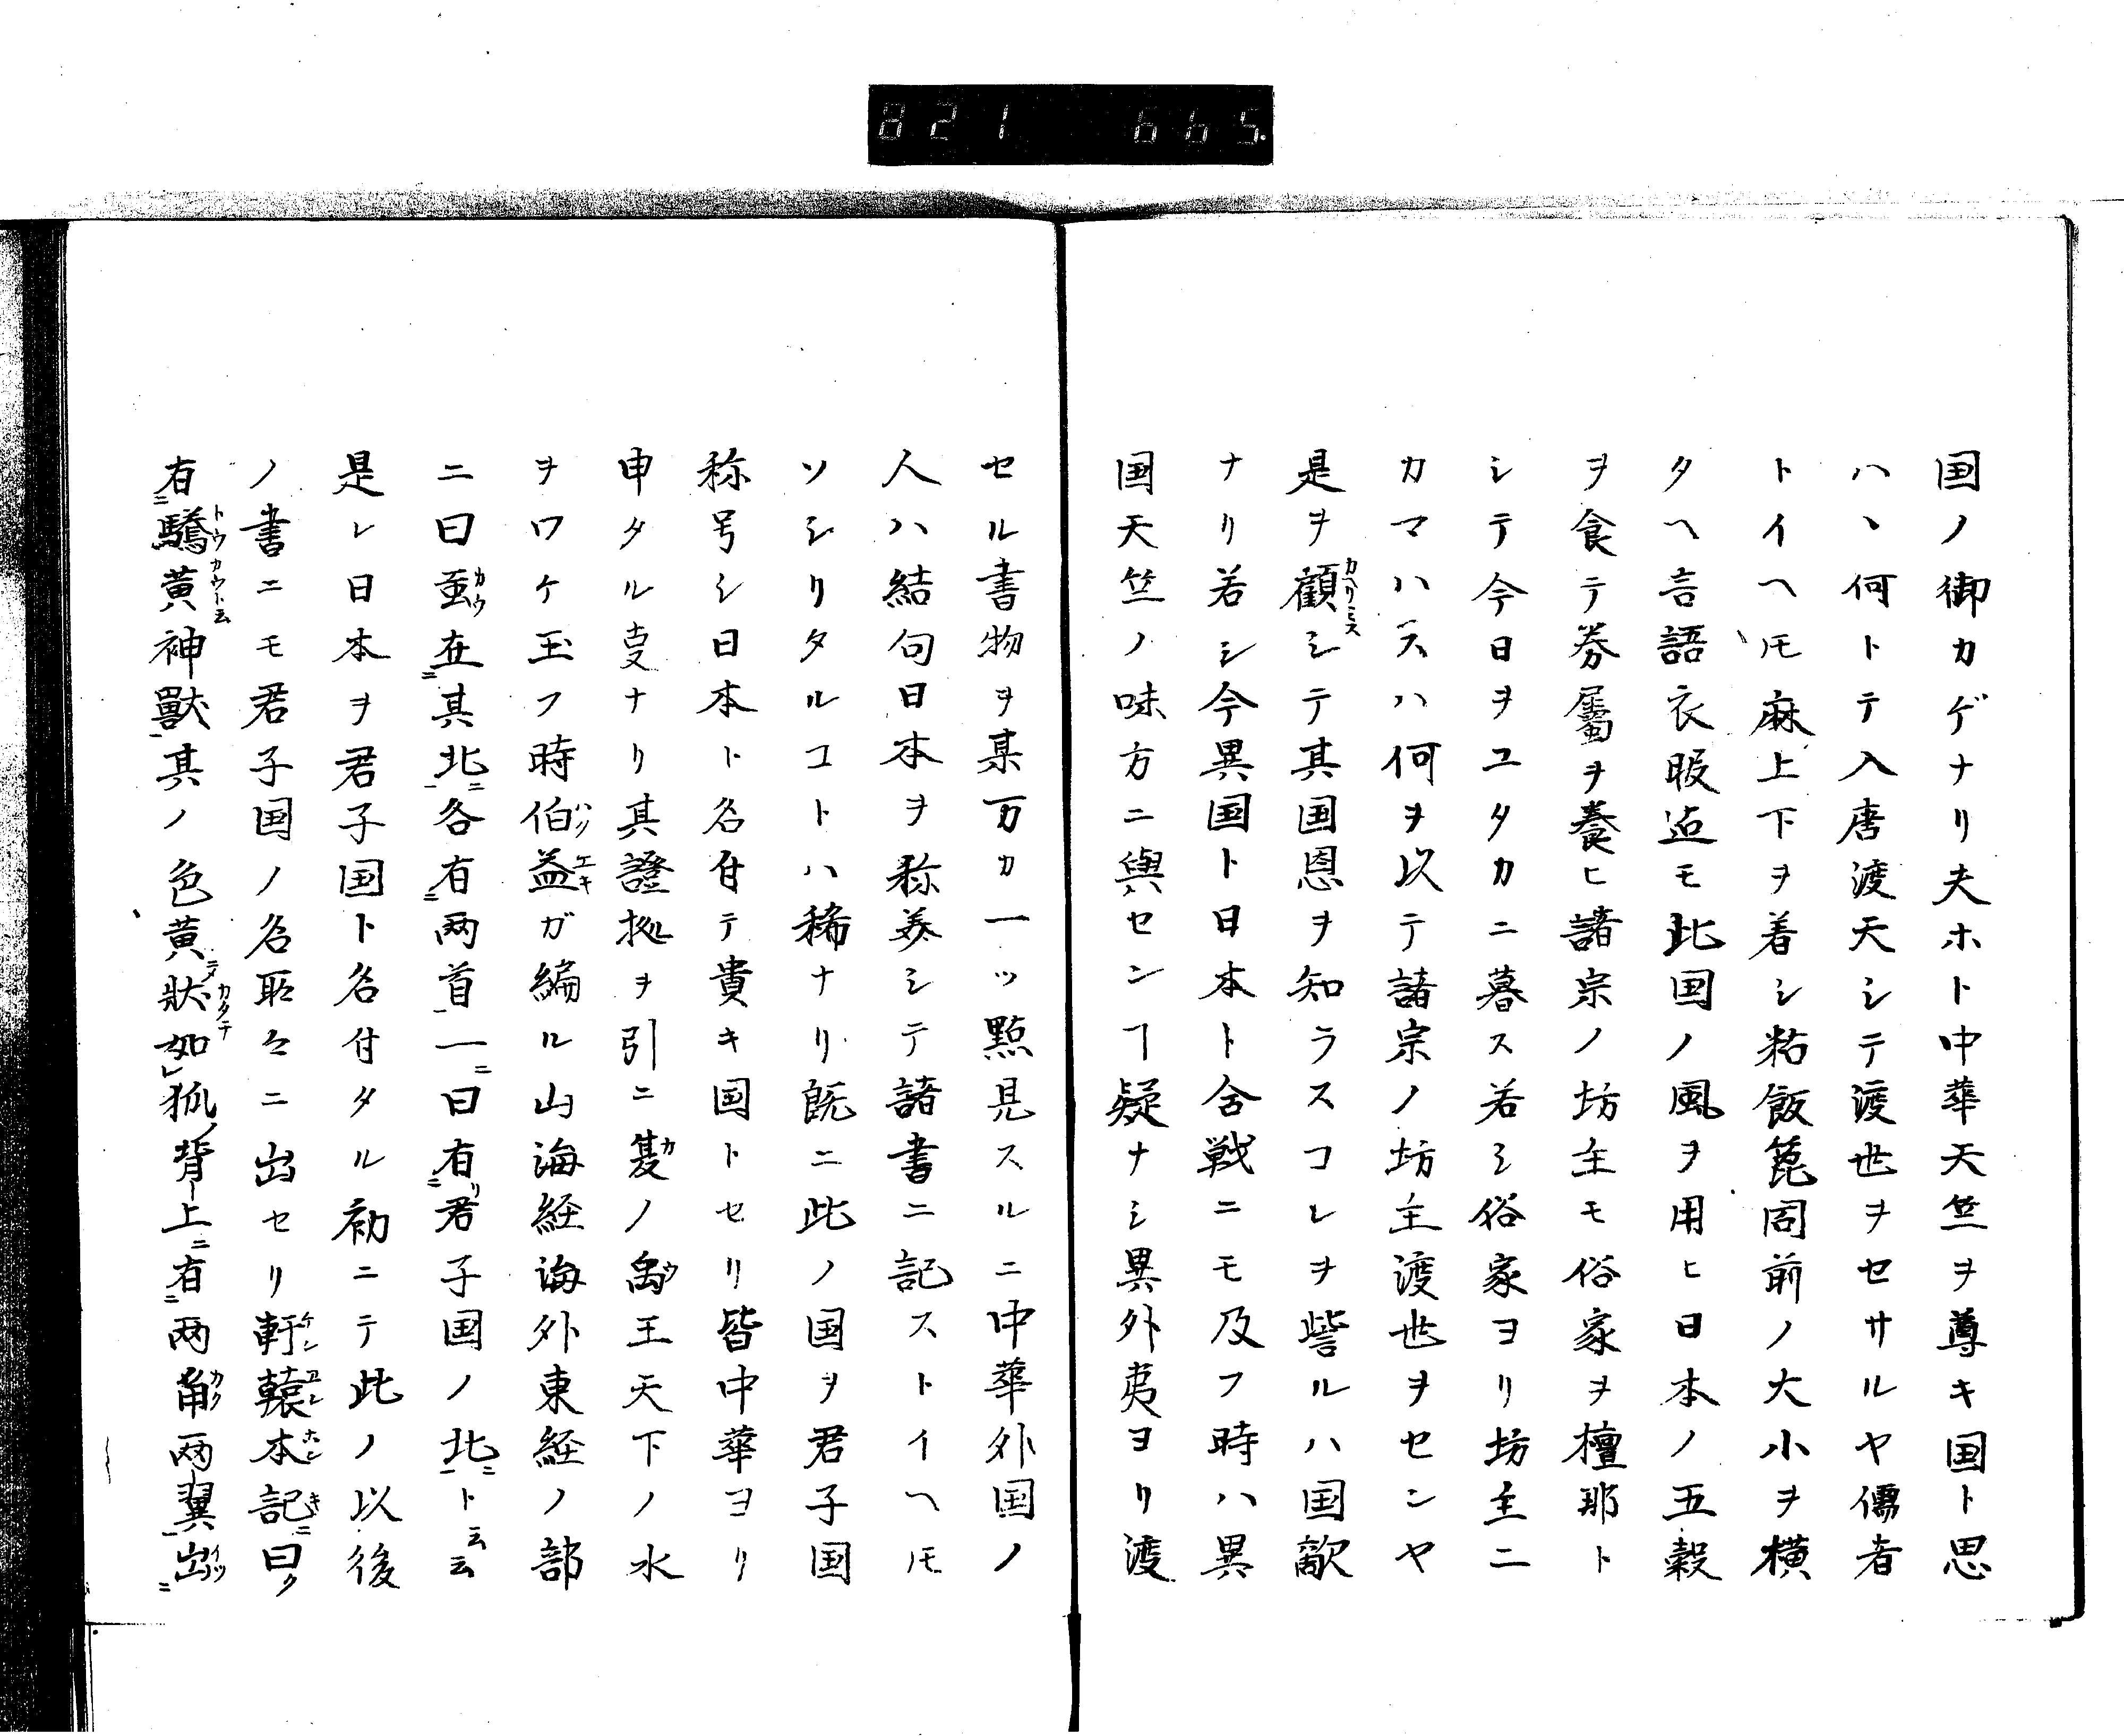 821 665.
国ノ御カゲナリ夫ホト中華天竺ヲ尊キ国ト思
ハヽ何トテ入唐渡天シテ渡世ヲセサルヤ儒者
トイヘヒモ麻上下ヲ着シ粘飯箆同前ノ大小ヲ横
タヘ言語衣服迄モ此国ノ風ヲ用ヒ日本ノ五穀
ヲ食テ眷属ヲ養ヒ諸宗ノ坊主モ俗家ヲ檀那ト
シテ今日ヲユタカニ暮ス若シ俗家ヨリ坊主ニ
カマハスハ何ヲ以テ諸宗ノ坊主渡世ヲセンヤ
是ヲ顧シテ其国恩ヲ知ラスコレヲ訾ルハ国敵
ナリ若シ今異国ト日本ト合戦ニモ及フ時ハ異
国天竺ノ味方ニ與センヿ疑ナシ異外夷ヨリ渡
セル書物ヲ某万カ一ッ點見スルニ中華外国ノ
人ハ結句日本ヲ称美シテ諸書ニ記ストイヘ𪜈
ソシリタルコトハ稀ナリ既ニ此ノ国ヲ君子国
称号シ日本ト名付テ貴キ国トセリ皆中華ヨリ
申タル叓ナリ其證拠ヲ引ニ夏ノ禹王天下ノ水
ヲワケ玉フ時伯益ガ編ル山海経海外東経ノ部
ニ曰䖝在其北各有両首一曰有君子国ノ北ト云云
是レ日本ヲ君子国ト名付タル初ニテ此ノ以後
ノ書ニモ君子国ノ名取々ニ出セリ軒轅本記曰ク
有騰黄神獣其ノ色黄状如狐背上有両角両翼出